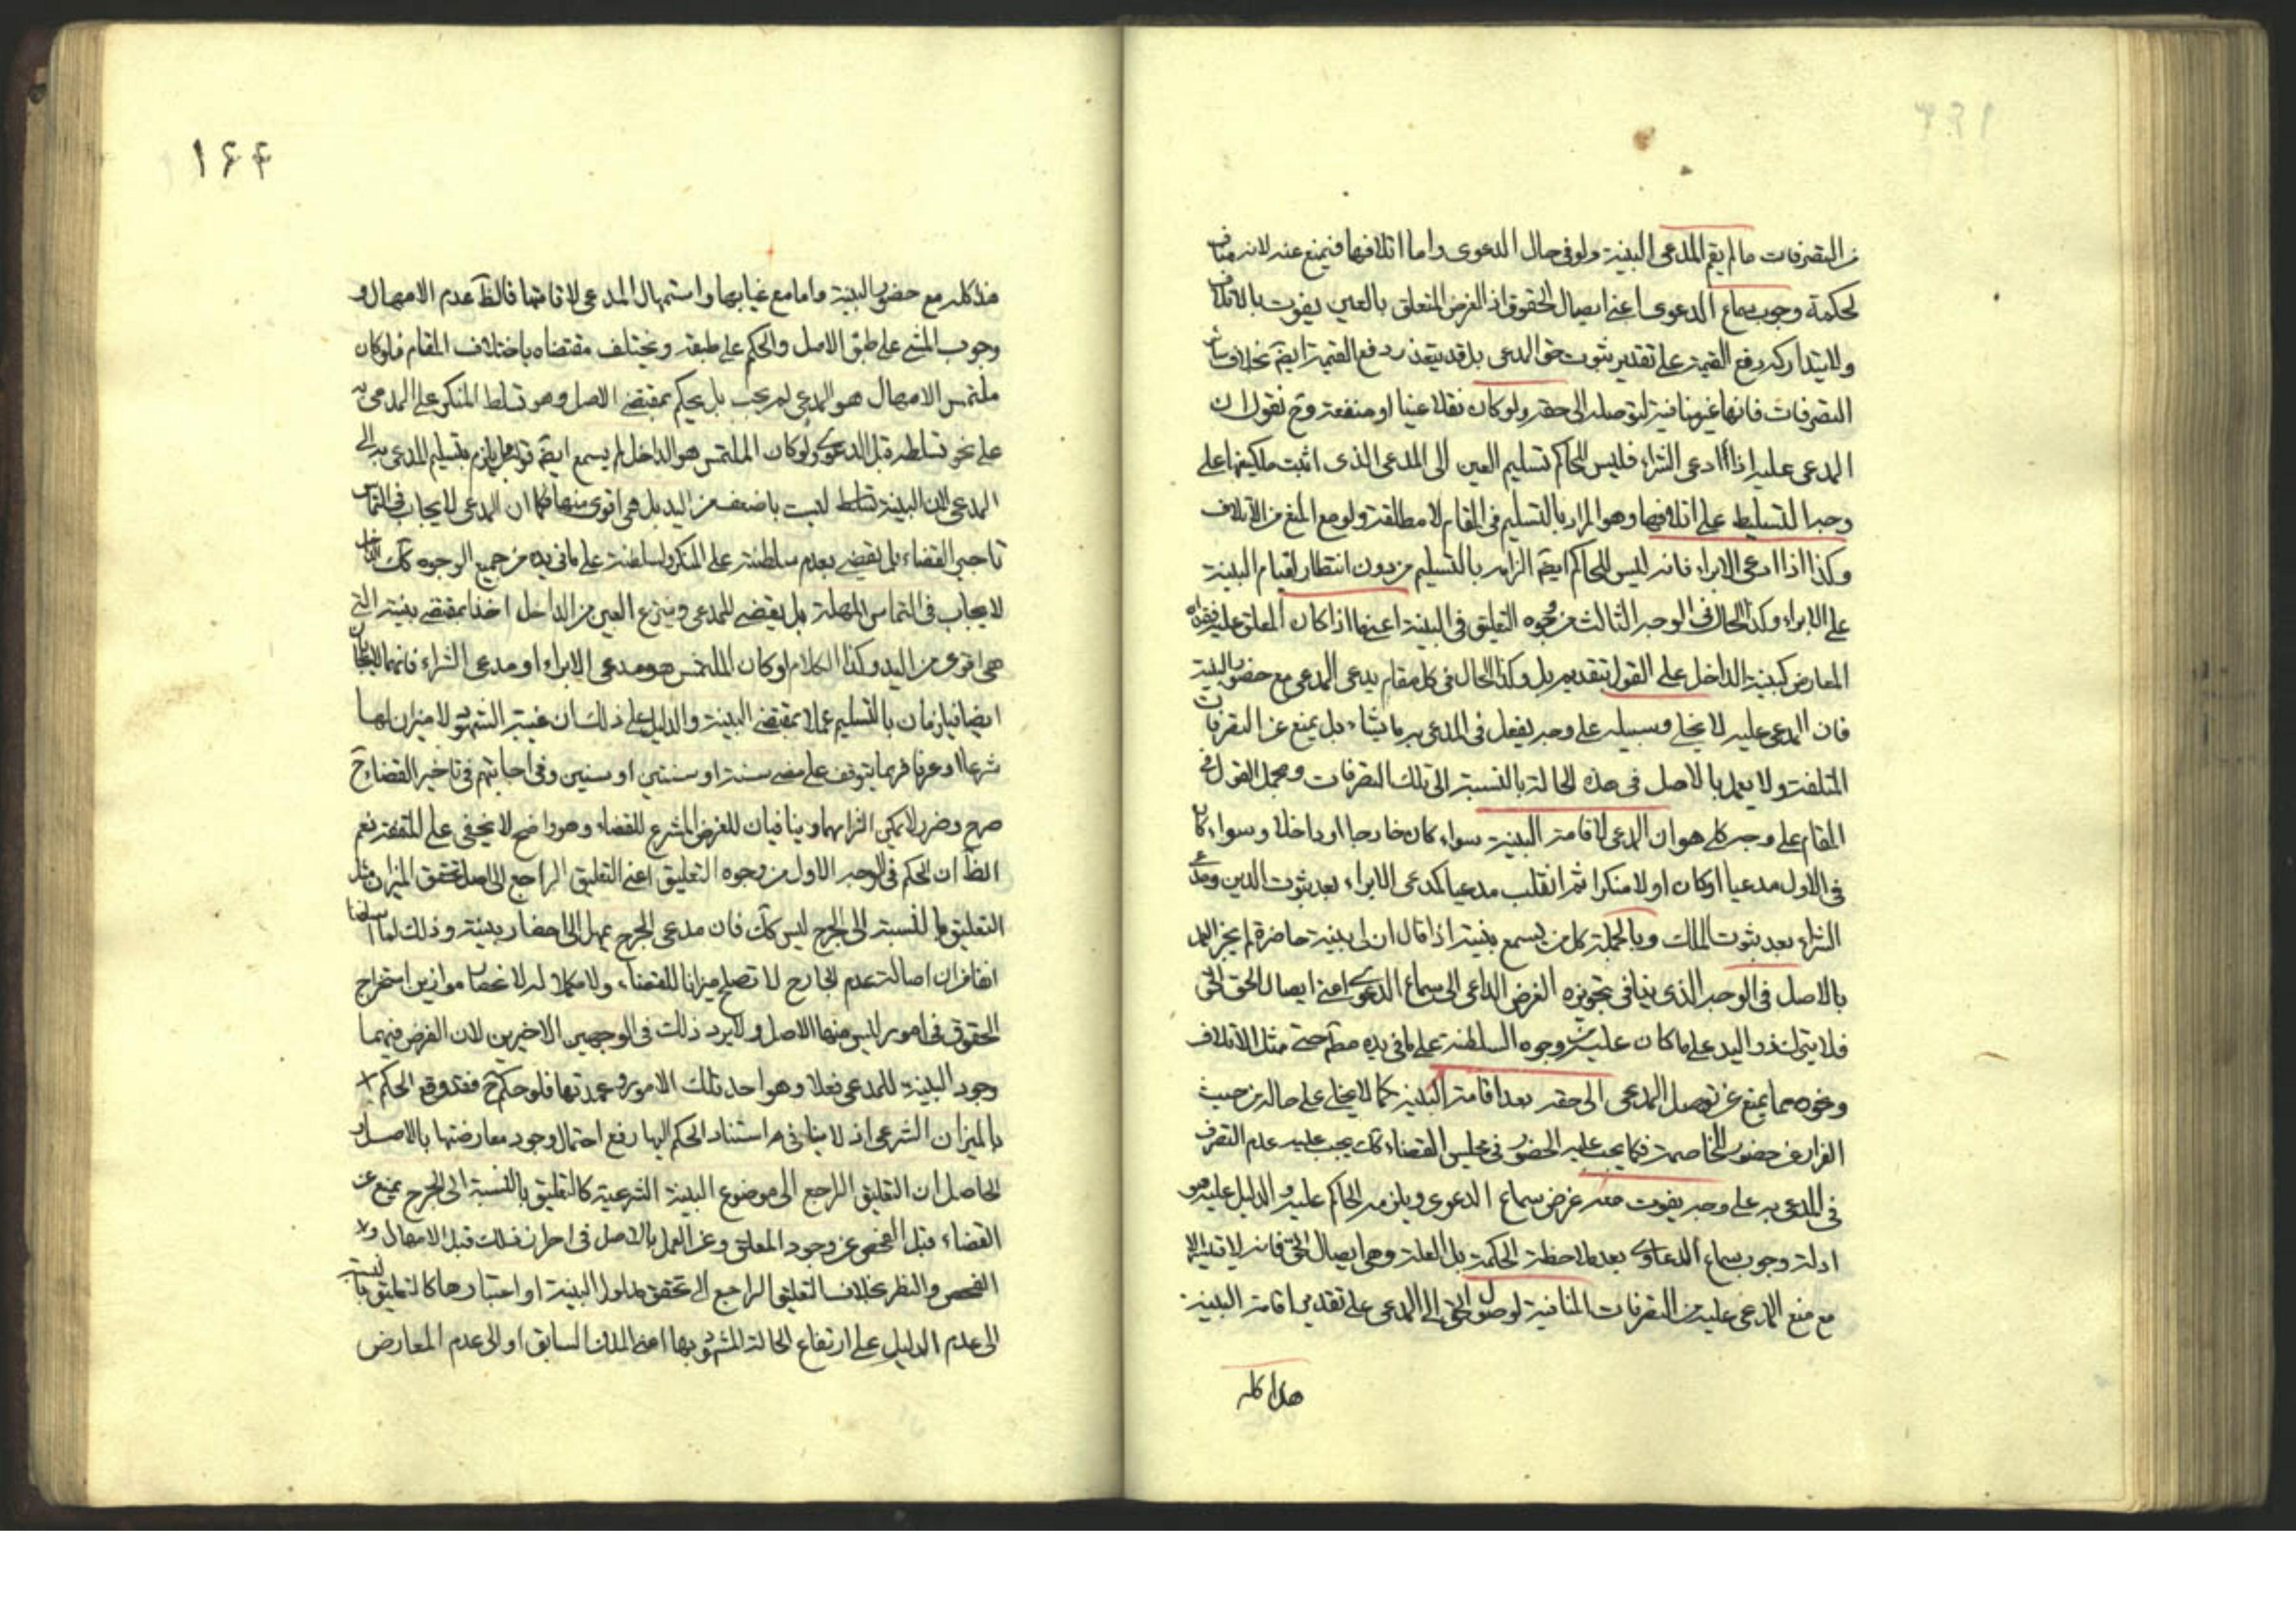 من التصرفات ما لم يقم المدعى البينة ولو فى حال الدعوى واما اتلافها فيمنع عنه لانه مناف
لحكمة وجوب سماع الدعوى اعنى ايصال الحقوق اذ الغرض المتعلق بالعين يفوت بالاتلاف
ولا يتداركه دفع القيمة على تقدير ثبوت حق المدعى بل قد يتعذر دفع القيمة ايضا بخلاف سائر
التصرفات فانها غير منافية لتوصله الى حقه ولو كان نقلا عينا او منفعة وح نقول ان
المدعى عليه اذا ادعى الشراء فليس للحاكم تسليم العين الى المدعى الذى اثبت ملكيتها على
وجه التسليط على اتلافها وهو المراد بالتسليم فى المقام لا مطلقة ولو مع المنع من الاتلاف
وكذا اذا ادعى الابراء فانه ليس للحاكم ايضا الزامه بالتسليم من دون انتظار لقيام البينة
على الابراء وكذا الحال فى الوجه الثالث من وجوه التعليق فى البينة اعنى ما اذا كان المعلق عليه فقدان
المعارض كبينة الداخل على القول بتقديمه بل وكذا الحال فى كل مقام يدعى المدعى مع حضور البينة
فان المدعى عليه لا يخلى وسبيله على وجه يفعل فى المدعى به ما يشاء بل يمنع عن التصرفات
المتلفة ولا يعمل بالاصل فى هذه الحالة بالنسبة الى تلك التصرفات ومجمل القول فى
المقام على وجه كلى هو ان المدعى لاقامة البينة سواء كان خارجا او داخلا وسواء كان
فى الاول مدعيا او كان اولا منكرا ثم انقلب مدعيا كمدعى الابراء بعد ثبوت الدين ومدعى
الشراء بعد ثبوت الملك وبالجملة كل من يسمع بينته اذا قال ان لى بينة حاضرة لم يجز العمل
بالاصل فى الوجه الذى ينافى تجويزه الغرض الداعى الى سماع الدعوى اعنى ايصال الحق
فلا يترك ذو اليد على ما كان عليه من وجوه السلطنة على ما فى يده مطم حتى مثل الاتلاف
ونحوه مما يمنع عن توصل المدعى الى حقه بعد اقامة البينة كما لا يخلى على حاله من حيث
الفرار عن حضور المخاصمة فكما يجب عليه الحضور فى مجلس القضاء كك يجب عليه عدم التصرف
فى المدعى به على وجه يفوت معه غرض سماع الدعوى ويلزمه الحاكم عليه والدليل عليه هو
ادلة وجوب سماع الدعاوى بعد ملاحظة الحكمة بل العلة وهى ايصال الحق فانه لا يتم الا
مع منع المدعى عليه من التصرفات المنافية لوصول الحق الى المدعى على تقدير اقامة البينة
هذا كله
۱۶۴
هذا كله مع حضور البينة واما مع غيابها واستمهال المدعى لاقامتها فالظ عدم الامهال و
وجوب المشى على طبق الاصل والحكم على طبقه ويختلف مقتضاه باختلاف المقام فلو كان
ملتمس الامهال هو المدعى لم يجب بل يحكم بمقتضى الاصل وهو تسلط المنكر على المدعى به
على نحو تسلطه قبل الدعوى ولو كان الملتمس هو الداخل لم يسمع ايضا قوله بل يلزم بتسليم المدعى به الى
المدعى لان البينة تسلط ليست باضعف من اليد بل هى اقوى منها فكما ان المدعى لا يجاب فى التماس
تاخير القضاء بل يقضى بعدم سلطنته على المنكر ولسلطنة على ما فى يده من جميع الوجوه كك الداخل
لا يجاب فى التماس المهلة بل يقضى للمدعى وينتزع العين من الداخل اخذا بمقتضى بينته التى
هى اقوى من اليد وكذا الكلام لو كان الملتمس هو مدعى الابراء او مدعى الشراء فانهما لا يجابان
ايضا فيلزمان بالتسليم عملا بمقتضى البينة والدليل على ذلك ان غيبة الشهود لا ميزان لها
شرعا او عرفا فربما يتوقف على مضى سنة او سنتين او سنين وفى اجابتهم فى تاخير القضاء ح
حرج وضرر لا يمكن التزامهما وينافيان للغرض المشرع للقضاء وهو واضح لا يخفى على المتفقه نعم
الظ ان الحكم فى الوجه الاول من وجوه التعليق اعنى التعليق الراجع الى اصل تحقق الميزان مثل
التعليق بالنسبة الى الجرح ليس كك فان مدعى الجرح يمهل الى احضار بينة وذلك لما اسلفنا
انفا من ان اصالة عدم الجارح لا تصلح ميزانا للقضاء ولا مكملا له لانحصار موازين استخراج
الحقوق فى امور ليس منها الاصل ولا يرد ذلك فى الوجهين الاخيرين لان الغرض فيهما
وجود البينة للمدعى فعلا وهو احد تلك الامور وعمدتها فلو حكم ح فقد وقع الحكم
بالميزان الشرعى اذ لا ينافى استناد الحكم اليها رفع احتمال وجود معارضتها بالاصل و
الحاصل ان التعليق الراجع الى موضوع البينة الشرعية كالتعليق بالنسبة الى الجرح يمنع عن
القضاء قبل الفحص عن وجود المعلق وعن العمل بالاصل فى احراز ذلك قبل الامهال و
الفحص والنظر بخلاف التعليق الراجع الى تحقق مدلول البينة او اعتبارها كالتعليق بالنسبة
الى عدم الدليل على ارتفاع الحالة المشهود بها اعنى الملك السابق او الى عدم المعارض